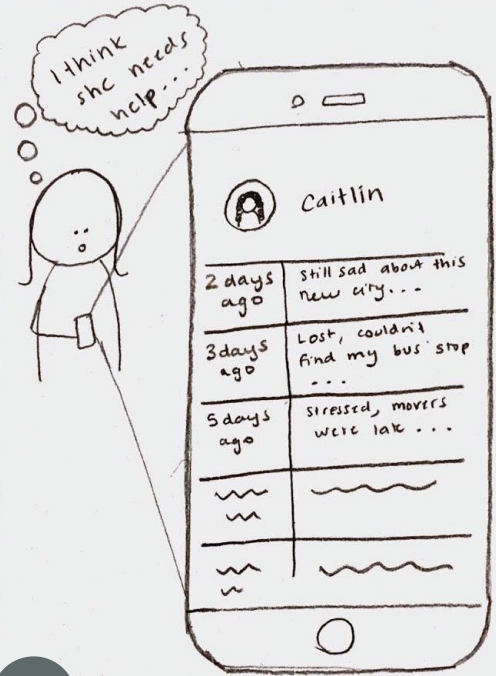 I think
she needs
help...
Caitlin
2 days
ago
Still sad about this
new city...
3 days
ago
Lost, couldn't
find my bus stop
...
5 days
ago
stressed, movers
were late ...